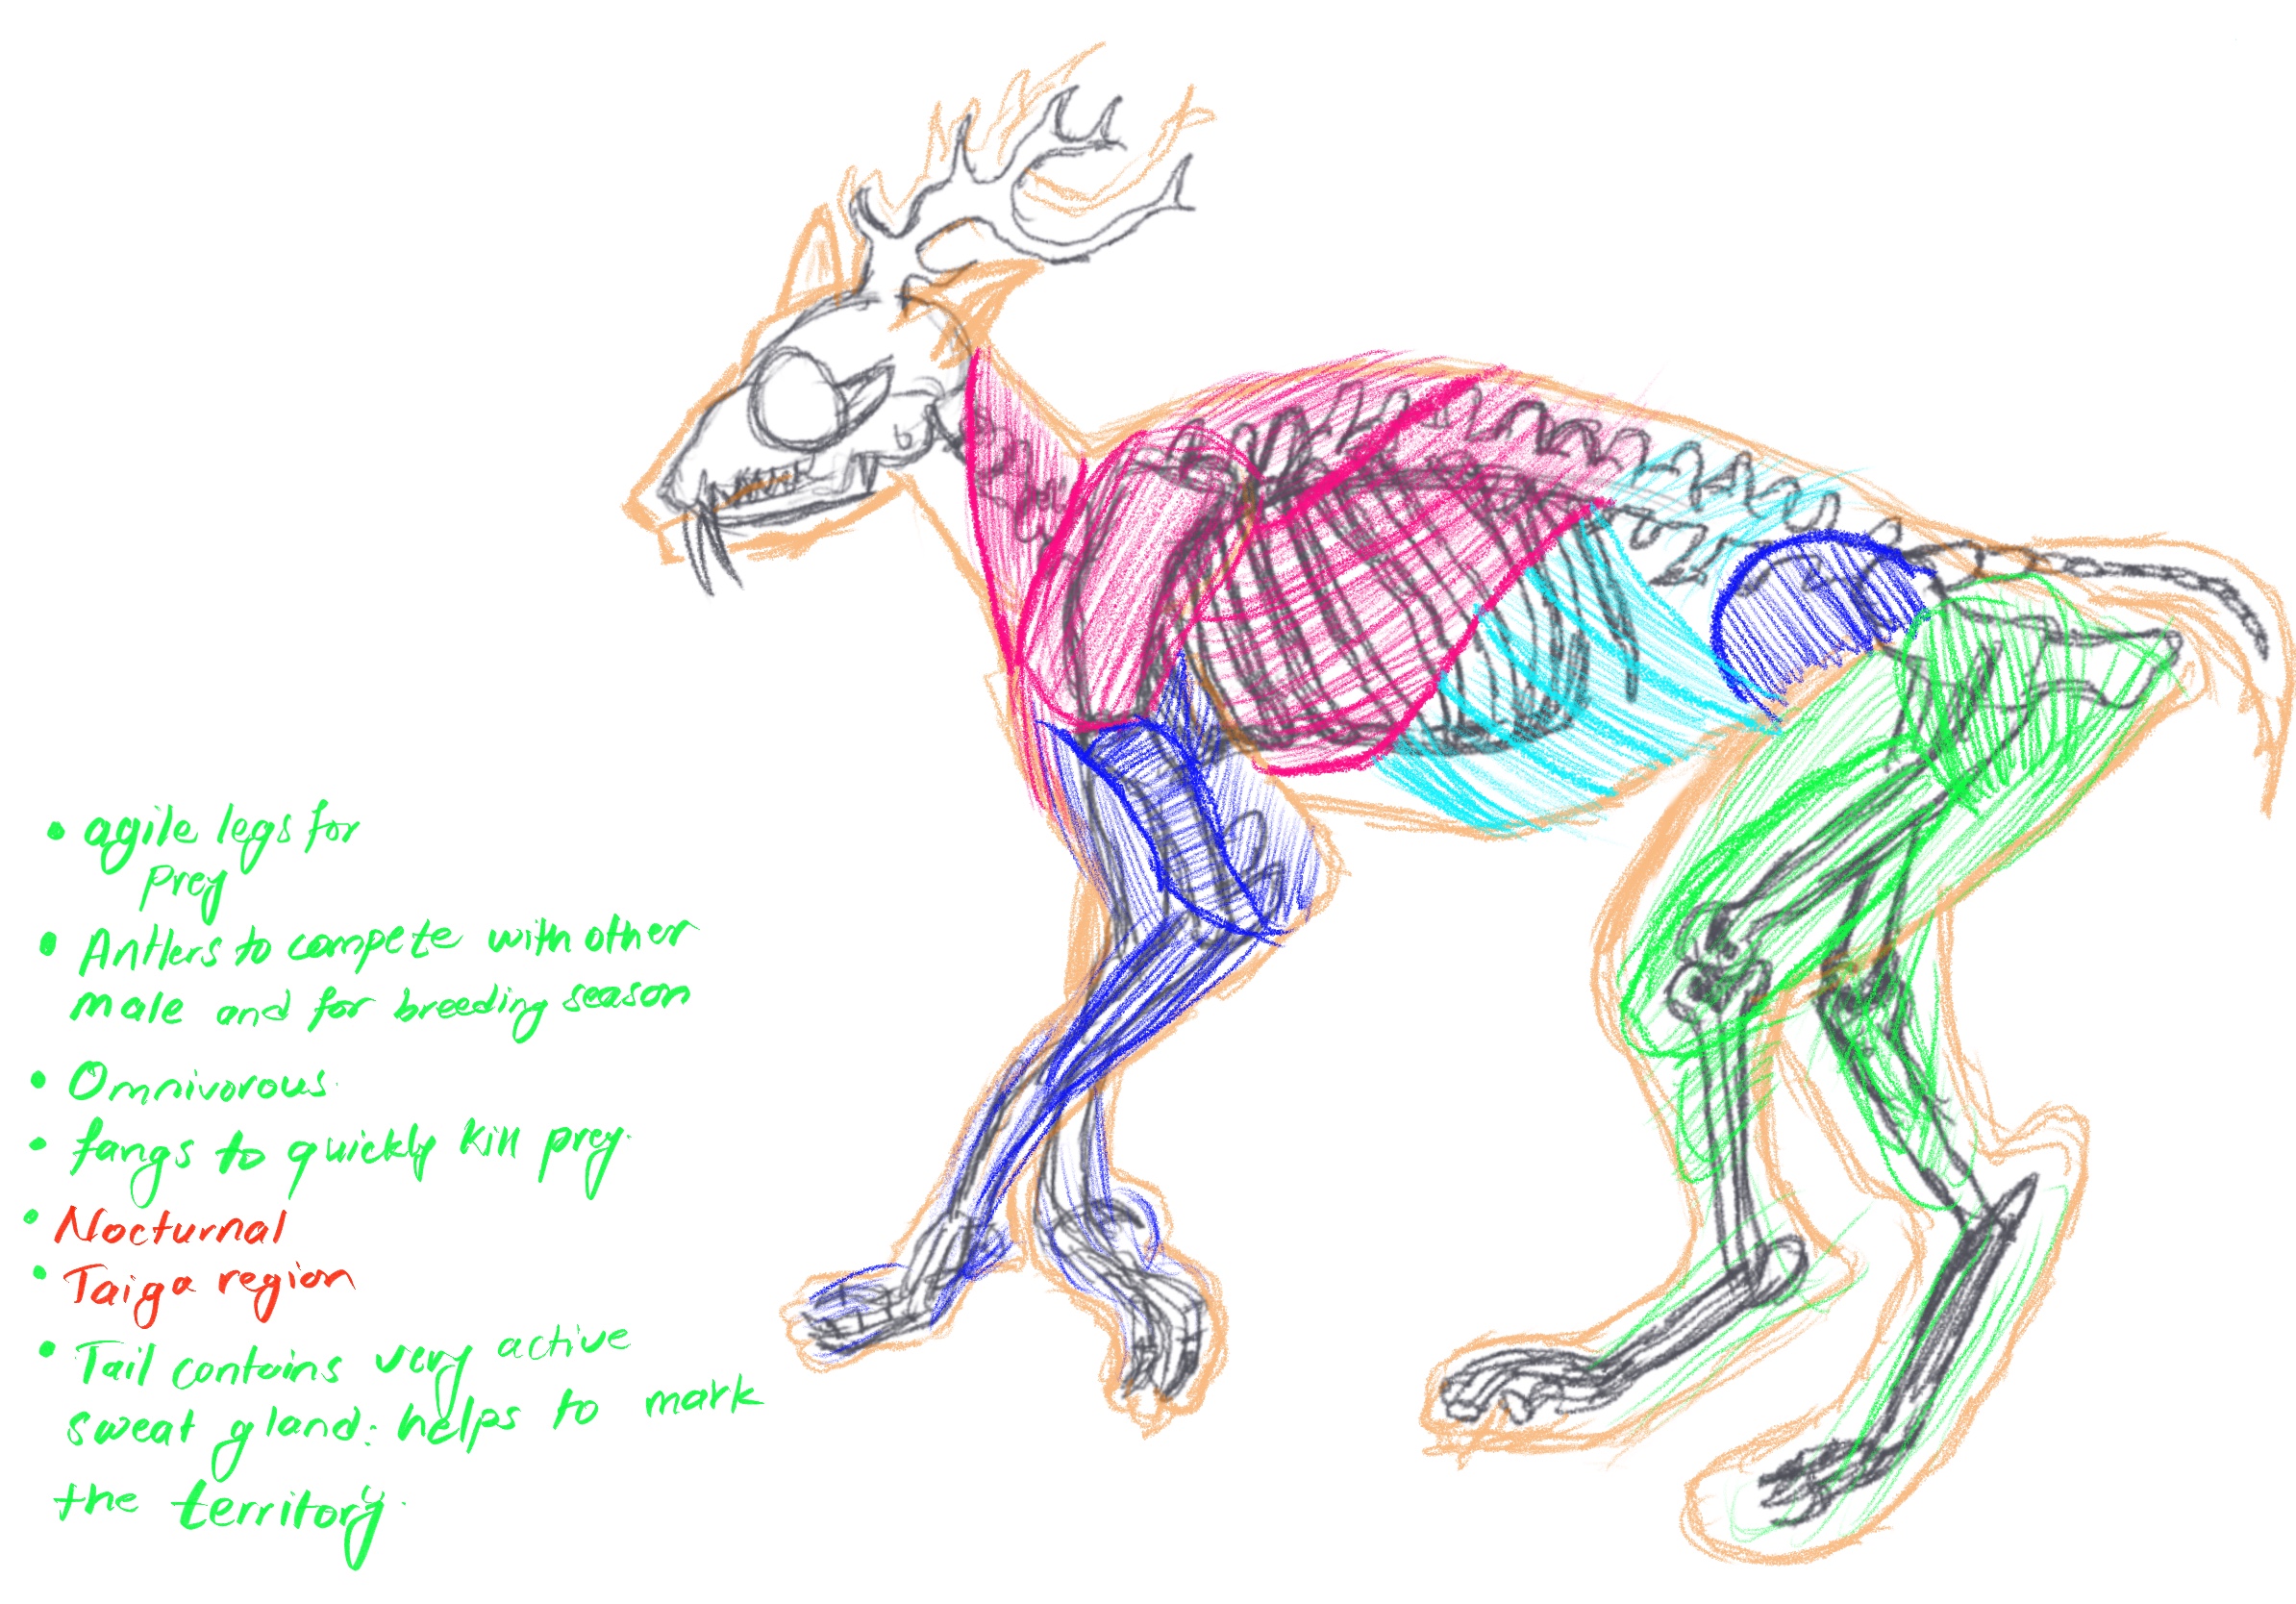 • agile legs for
prey
• Antlers to compete with other
male and for breeding season
• Omnivorous.
• fangs to quickly kill prey.
• Nocturnal
• Taiga region
• Tail contains very active
sweat gland: helps to mark
the territory.